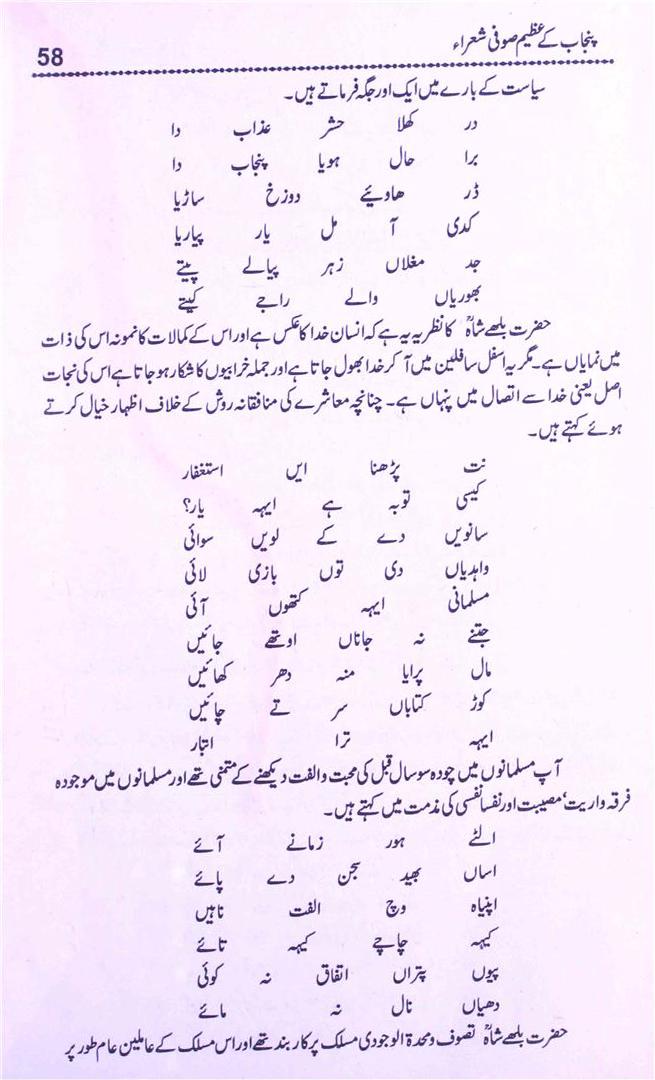 پنجاب کے عظیم صوفی شعراء
58
سیاست کے بارے میں ایک اور جگہ فرماتے ہیں۔
در کھلا حشر عذاب دا
برا حال ہویا پنجاب دا
ڈر ھاویئے دوزخ ساڑیا
کدی آ مل یار پیاریا
جد مغلاں زہر پیالے پیتے
بھوریاں والے راجے کیتے
حضرت بلھے شاہؒ کا نظریہ یہ ہے کہ انسان خدا کا عکس ہے اور اس کے کمالات کا نمونہ اس کی ذات
میں نمایاں ہے۔ مگر یہ اسفل سافلین میں آ کر خدا بھول جاتا ہے اور جملہ خرابیوں کا شکار ہو جاتا ہے اس کی نجات
اصل یعنی خدا سے اتصال میں پنہاں ہے۔ چنانچہ معاشرے کی منافقانہ روش کے خلاف اظہار خیال کرتے
ہوئے کہتے ہیں۔
نت پڑھنا ایں استغفار
کیسی توبہ ہے ایہہ یار؟
سانویں دے کے لویں سوائی
واہدیاں دی توں بازی لائی
مسلمانی ایہہ کتھوں آئی
جتنے نہ جاناں اوتھے جائیں
مال پرایا منہ دھر کھائیں
کوڑ کتاباں سر تے چائیں
ایہہ ترا اتبار
آپ مسلمانوں میں چودہ سو سال قبل کی محبت و الفت دیکھنے کے متمنی تھے اور مسلمانوں میں موجودہ
فرقہ واریت‘ مصیبت اور نفسا نفسی کی مذمت میں کہتے ہیں۔
الٹے ہور زمانے آئے
اساں بھید سجن دے پائے
اپنیاہ وچ الفت ناہیں
کیہہ چاچے کیہہ تائے
پیوں پتراں اتفاق نہ کوئی
دھیاں نال نہ مائے
حضرت بلھے شاہؒ تصوف وحدۃ الوجودی مسلک پر کاربند تھے اور اس مسلک کے عاملین عام طور پر